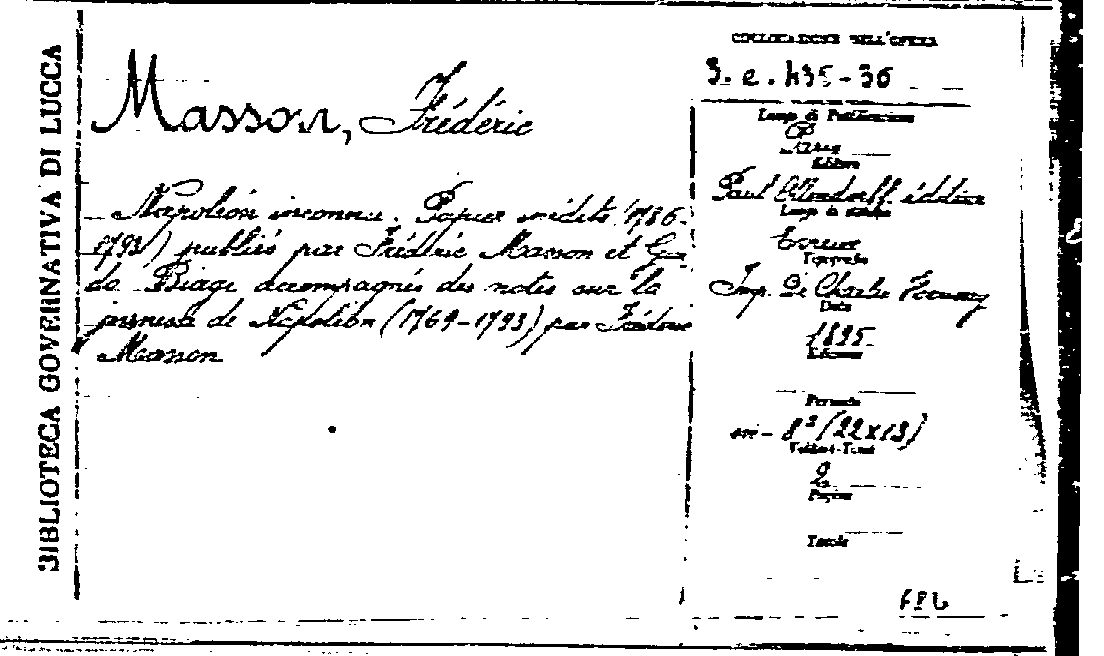 BIBLIOTECA GOVERNATIVA DI LUCCA
Masson, Frédéric
Napoléon inconnu. Papier inédits (1786-
1793) publiés par Frédéric Masson et Gui
do Biagi accompagnés des notes sur la
jeunesse de Napoléon (1769-1793) par Frédéric
Masson
COLLOCAZIONE DELL'OPERA
3. e. 435-36
Luogo di Pubblicazione
Editore
Paul Ollendorff. éditeur
Luogo di stampa
Tipografo
Imp. De Charles
Data
1895
Edizione
Formato
in- 8° (22x13)
Volumi-Tomi
2
Pagine
Tavole